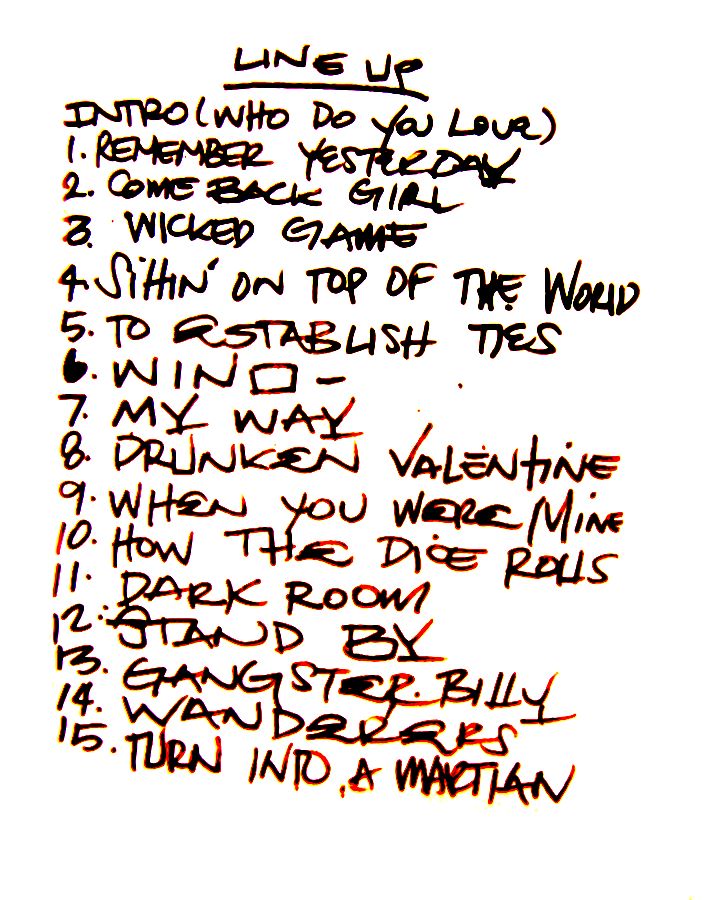 LINE UP
INTRO (WHO DO YOU LOVE)
1. REMEMBER YESTERDAY
2. COME BACK GIRL
3. WICKED GAME
4. SITTIN' ON TOP OF THE WORLD
5. TO ESTABLISH TIES
6. WIN □ -
7. MY WAY
8. DRUNKEN VALENTINE
9. WHEN YOU WERE MINE
10. HOW THE DICE ROLLS
11. DARK ROOM
12. STAND BY
13. GANGSTER BILLY
14. WANDERERS
15. TURN INTO A MARTIAN